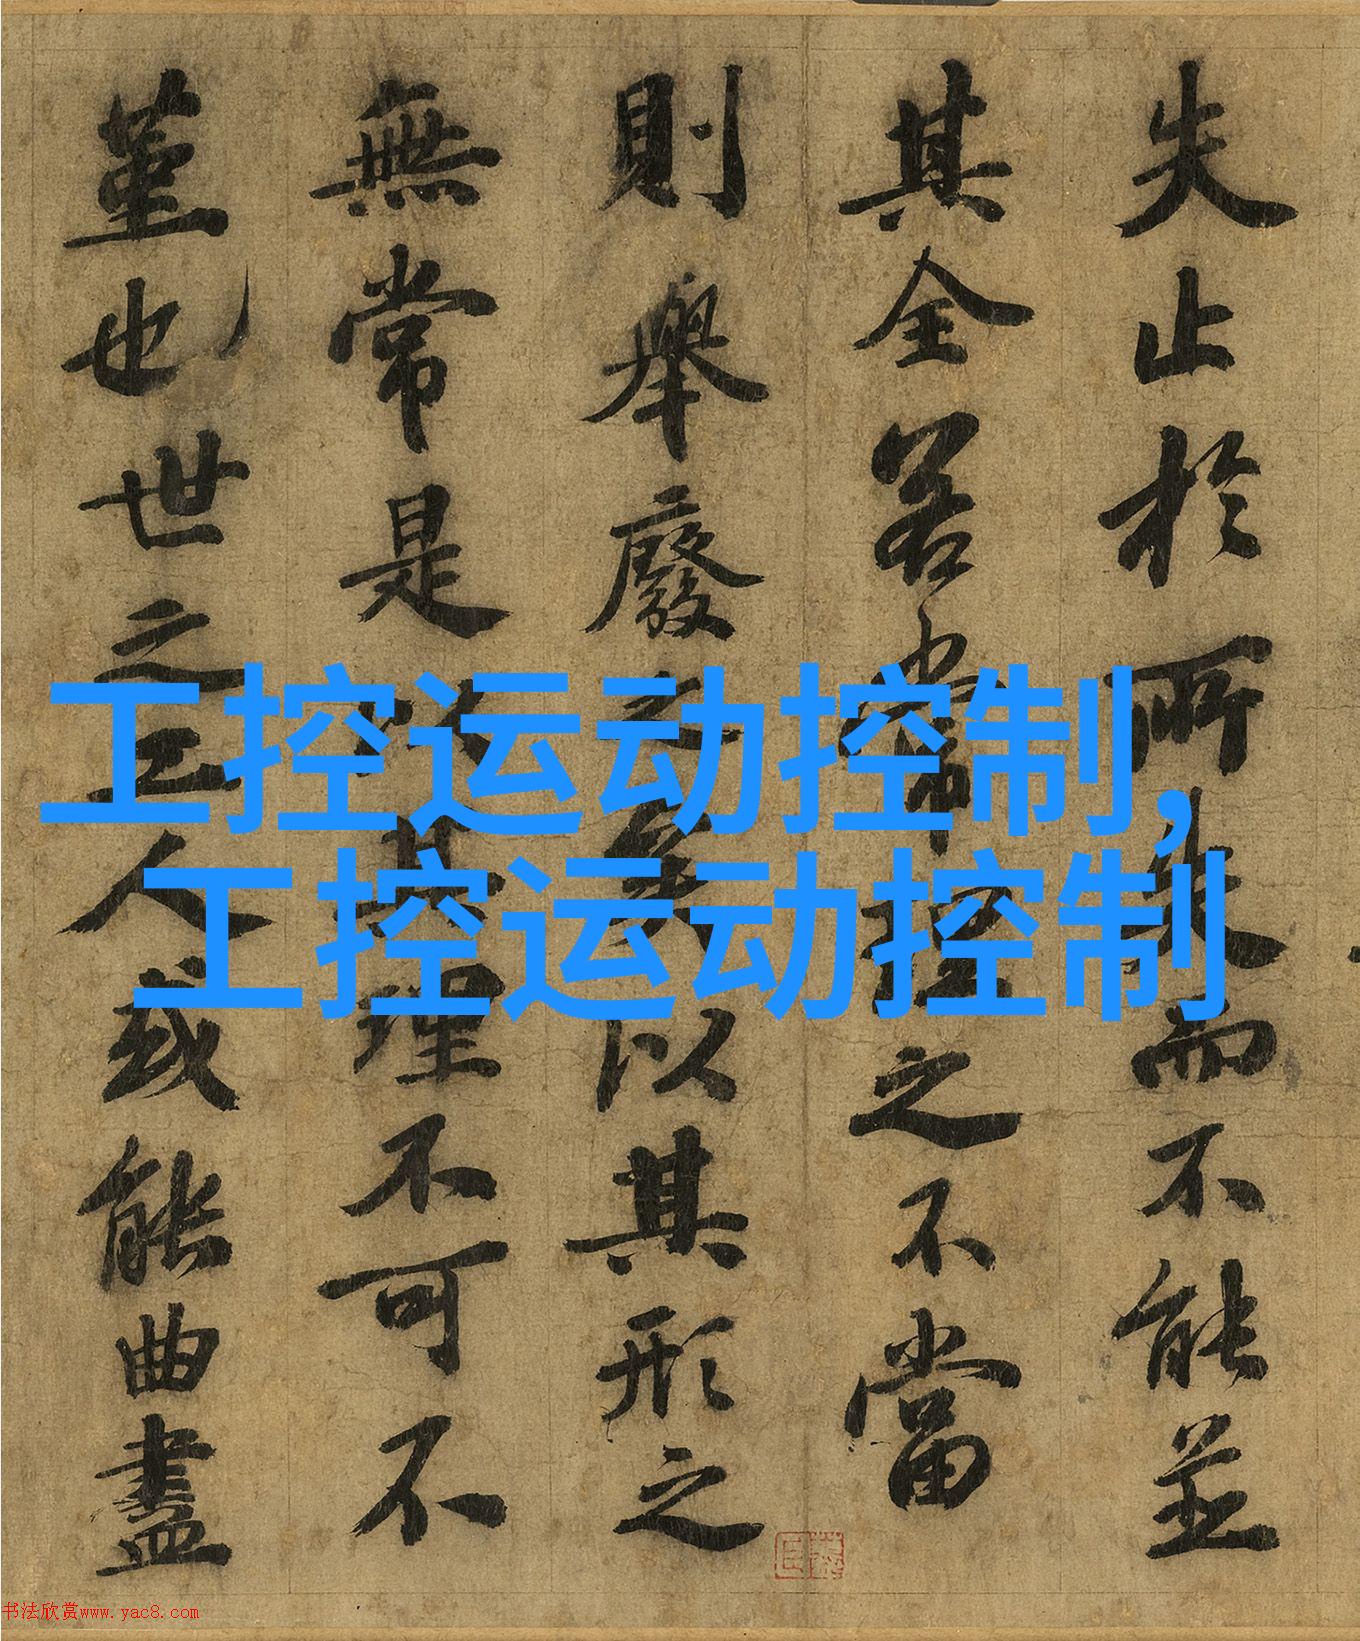 失止於所失而不能並
其全若常理之不當
則舉廢之矣以其形之
無常是以其理不可不
堇也世之工人或能曲盡
工控运动控制,
工控运动控制
书法欣赏www.yac8.com